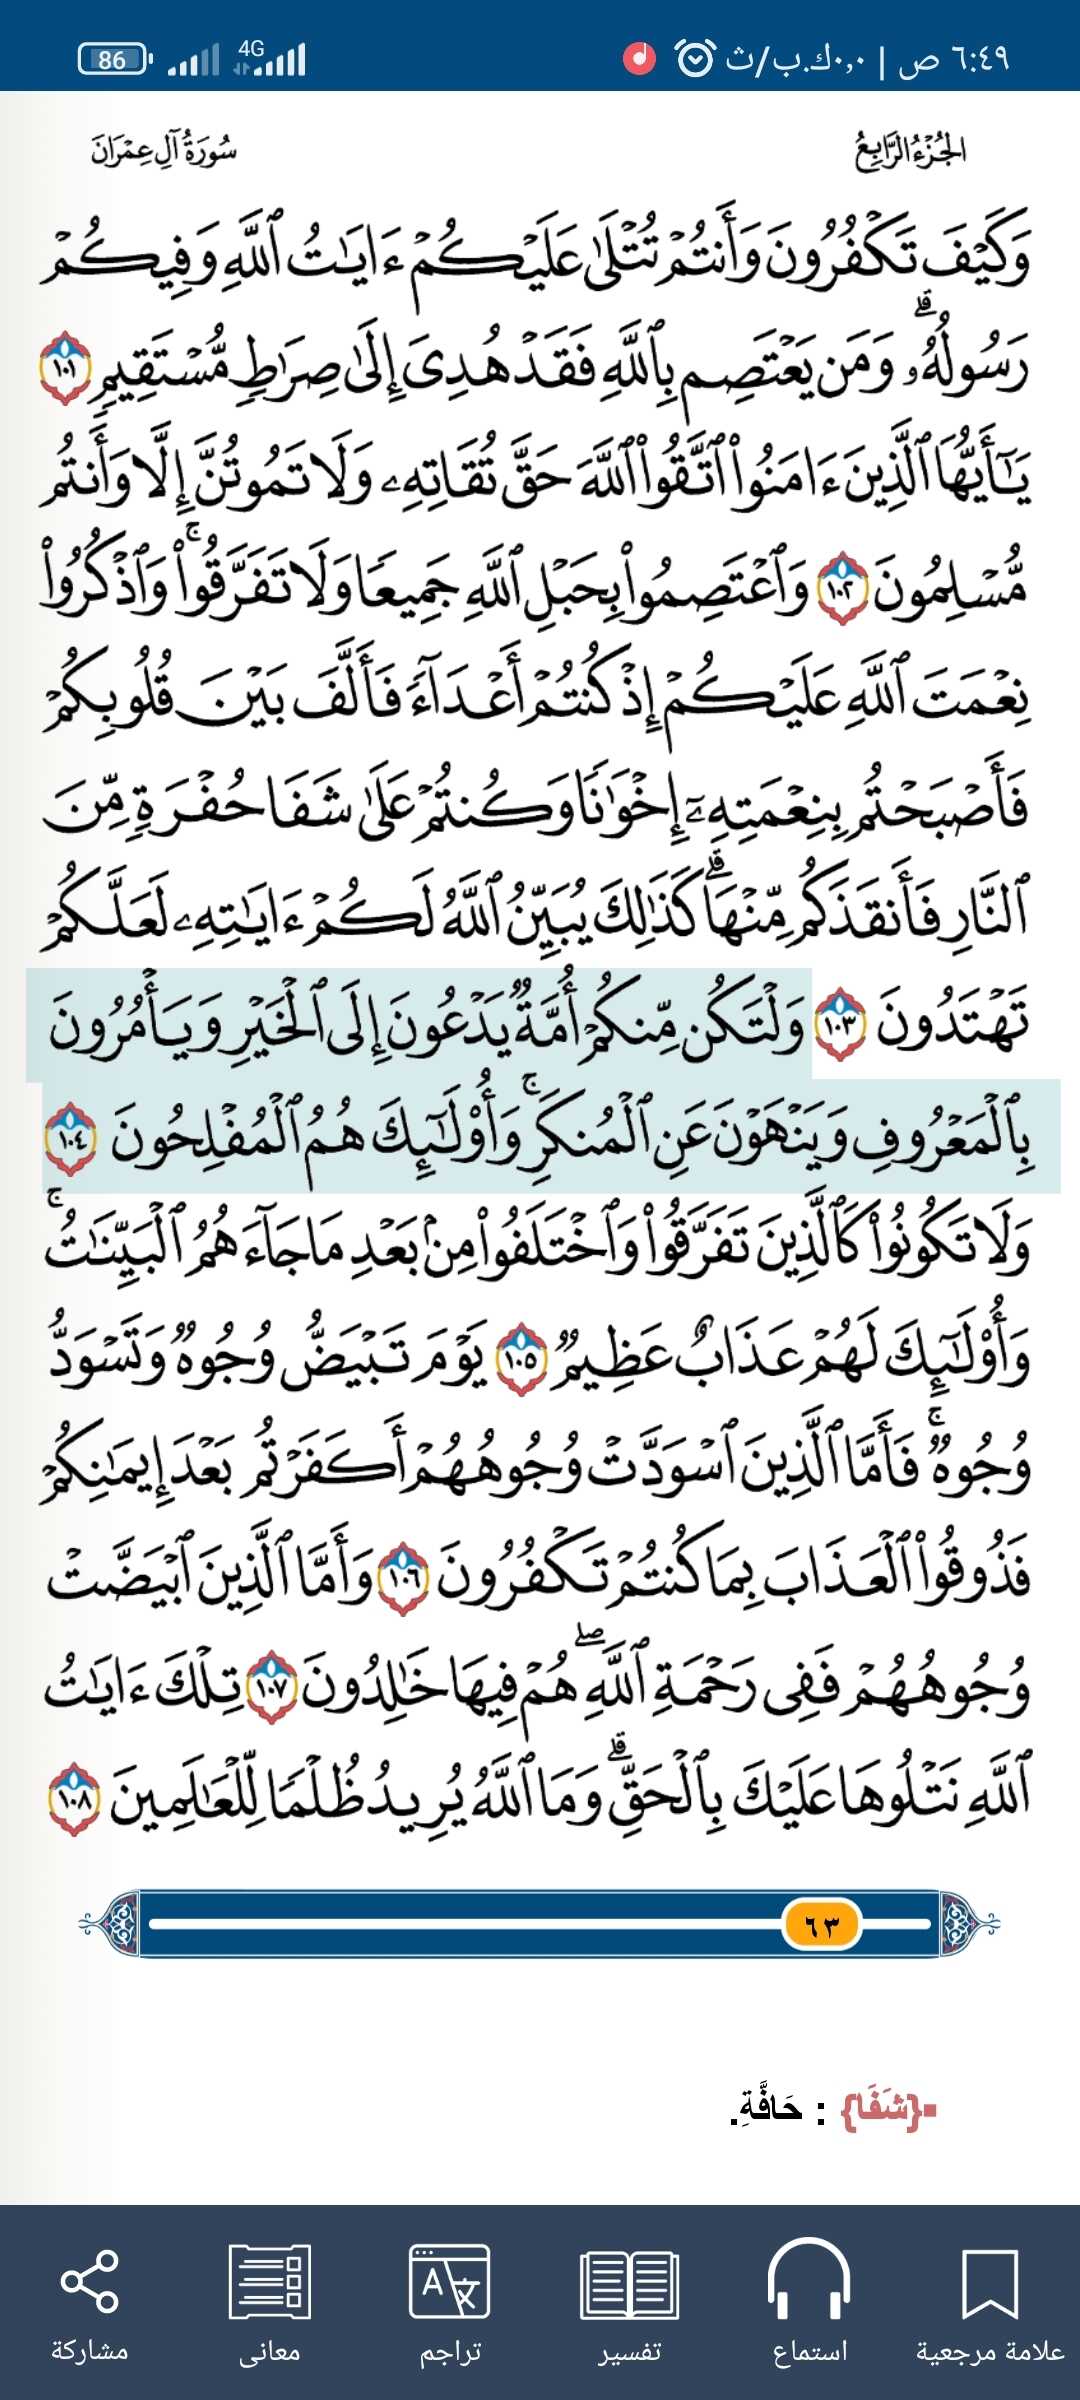 ٦:٤٩ ص | ٠,٠ك.ب/ث 4G 86
الجُزْءُ الرَّابِعُ سُورَةُ آلِ عِمْرَانَ
وَكَيْفَ تَكْفُرُونَ وَأَنتُمْ تُتْلَىٰ عَلَيْكُمْ ءَايَٰتُ ٱللَّهِ وَفِيكُمْ
رَسُولُهُۥۗ وَمَن يَعْتَصِم بِٱللَّهِ فَقَدْ هُدِىَ إِلَىٰ صِرَٰطٍ مُّسْتَقِيمٍ ١٠١
يَٰٓأَيُّهَا ٱلَّذِينَ ءَامَنُوا۟ ٱتَّقُوا۟ ٱللَّهَ حَقَّ تُقَاتِهِۦ وَلَا تَمُوتُنَّ إِلَّا وَأَنتُم
مُّسْلِمُونَ ١٠٢ وَٱعْتَصِمُوا۟ بِحَبْلِ ٱللَّهِ جَمِيعًا وَلَا تَفَرَّقُوا۟ۚ وَٱذْكُرُوا۟
نِعْمَتَ ٱللَّهِ عَلَيْكُمْ إِذْ كُنتُمْ أَعْدَآءً فَأَلَّفَ بَيْنَ قُلُوبِكُمْ
فَأَصْبَحْتُم بِنِعْمَتِهِۦٓ إِخْوَٰنًا وَكُنتُمْ عَلَىٰ شَفَا حُفْرَةٍ مِّنَ
ٱلنَّارِ فَأَنقَذَكُم مِّنْهَاۗ كَذَٰلِكَ يُبَيِّنُ ٱللَّهُ لَكُمْ ءَايَٰتِهِۦ لَعَلَّكُمْ
تَهْتَدُونَ ١٠٣ وَلْتَكُن مِّنكُمْ أُمَّةٌ يَدْعُونَ إِلَى ٱلْخَيْرِ وَيَأْمُرُونَ
بِٱلْمَعْرُوفِ وَيَنْهَوْنَ عَنِ ٱلْمُنكَرِۚ وَأُو۟لَٰٓئِكَ هُمُ ٱلْمُفْلِحُونَ ١٠٤
وَلَا تَكُونُوا۟ كَٱلَّذِينَ تَفَرَّقُوا۟ وَٱخْتَلَفُوا۟ مِنۢ بَعْدِ مَا جَآءَهُمُ ٱلْبَيِّنَٰتُۚ
وَأُو۟لَٰٓئِكَ لَهُمْ عَذَابٌ عَظِيمٌ ١٠٥ يَوْمَ تَبْيَضُّ وُجُوهٌ وَتَسْوَدُّ
وُجُوهٌۚ فَأَمَّا ٱلَّذِينَ ٱسْوَدَّتْ وُجُوهُهُمْ أَكَفَرْتُم بَعْدَ إِيمَٰنِكُمْ
فَذُوقُوا۟ ٱلْعَذَابَ بِمَا كُنتُمْ تَكْفُرُونَ ١٠٦ وَأَمَّا ٱلَّذِينَ ٱبْيَضَّتْ
وُجُوهُهُمْ فَفِى رَحْمَةِ ٱللَّهِۖ هُمْ فِيهَا خَٰلِدُونَ ١٠٧ تِلْكَ ءَايَٰتُ
ٱللَّهِ نَتْلُوهَا عَلَيْكَ بِٱلْحَقِّۗ وَمَا ٱللَّهُ يُرِيدُ ظُلْمًا لِّلْعَٰلَمِينَ ١٠٨
٦٣
▪{شَفَا} : حَافَّةِ.
علامة مرجعية استماع تفسير تراجم معانى مشاركة